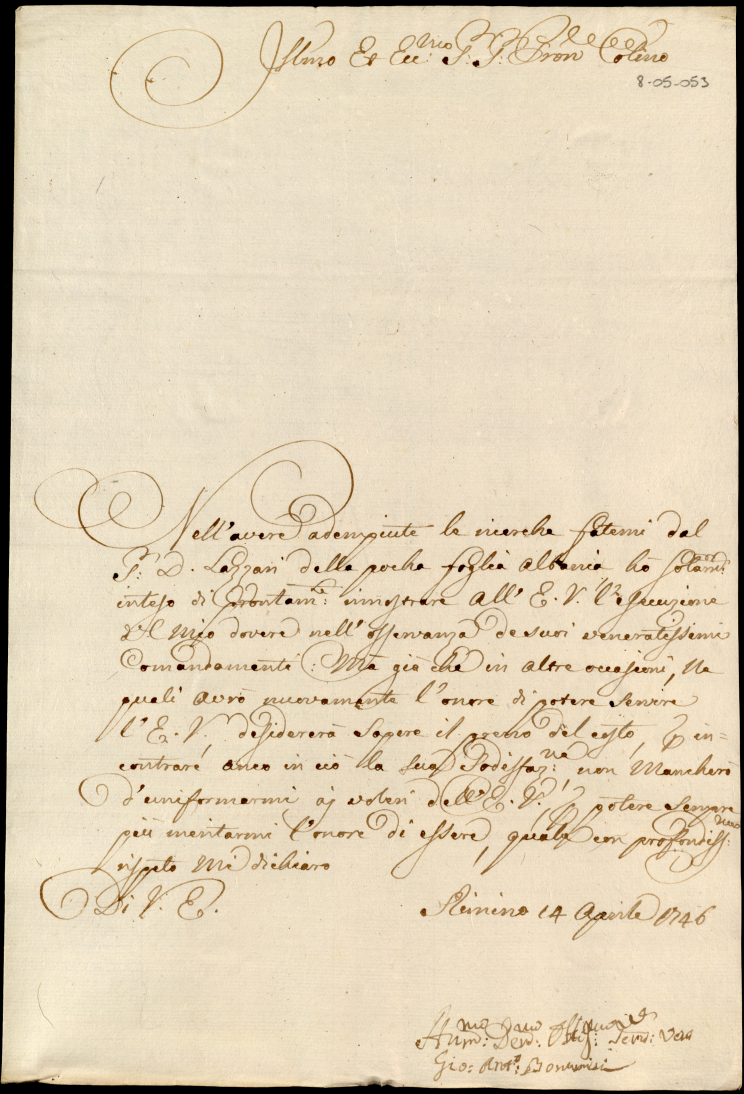 Illmo Et Ecc:mo S: S: Pron Colmo
8-05-053
Nell'avere adempiute le ricerche fatemi dal
S: D. Lazzari della pocha foglia Albania hò solam:te
inteso di prontam:te mostrare all' E. V. l'essecuzione
del mio dovere nell'osservanza de suoi veneratissimi
Comandamenti: Mà già che in altre occasioni, ne
quali avrò nuovamente l'onore di potere servire
l'E. V. desidererà sapere il prezzo del costo, p in=
contrare anco in ciò la sua sodisfaz:ne, non Mancherò
d'uniformarmi aj voleri dell'E. V., p potere sempre
più meritarmi l'onore di essere, quale con profondiss:mo
rispeto Mi dichiaro
Di V. E.
Rimino 14 Aprile 1746
Hum:mo Dev:mo Obligmo Serv: Vero
Gio: Ant:o